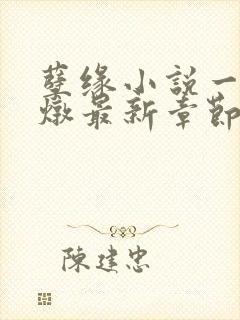 孽缘小説一
燉最新章節
陳建忠